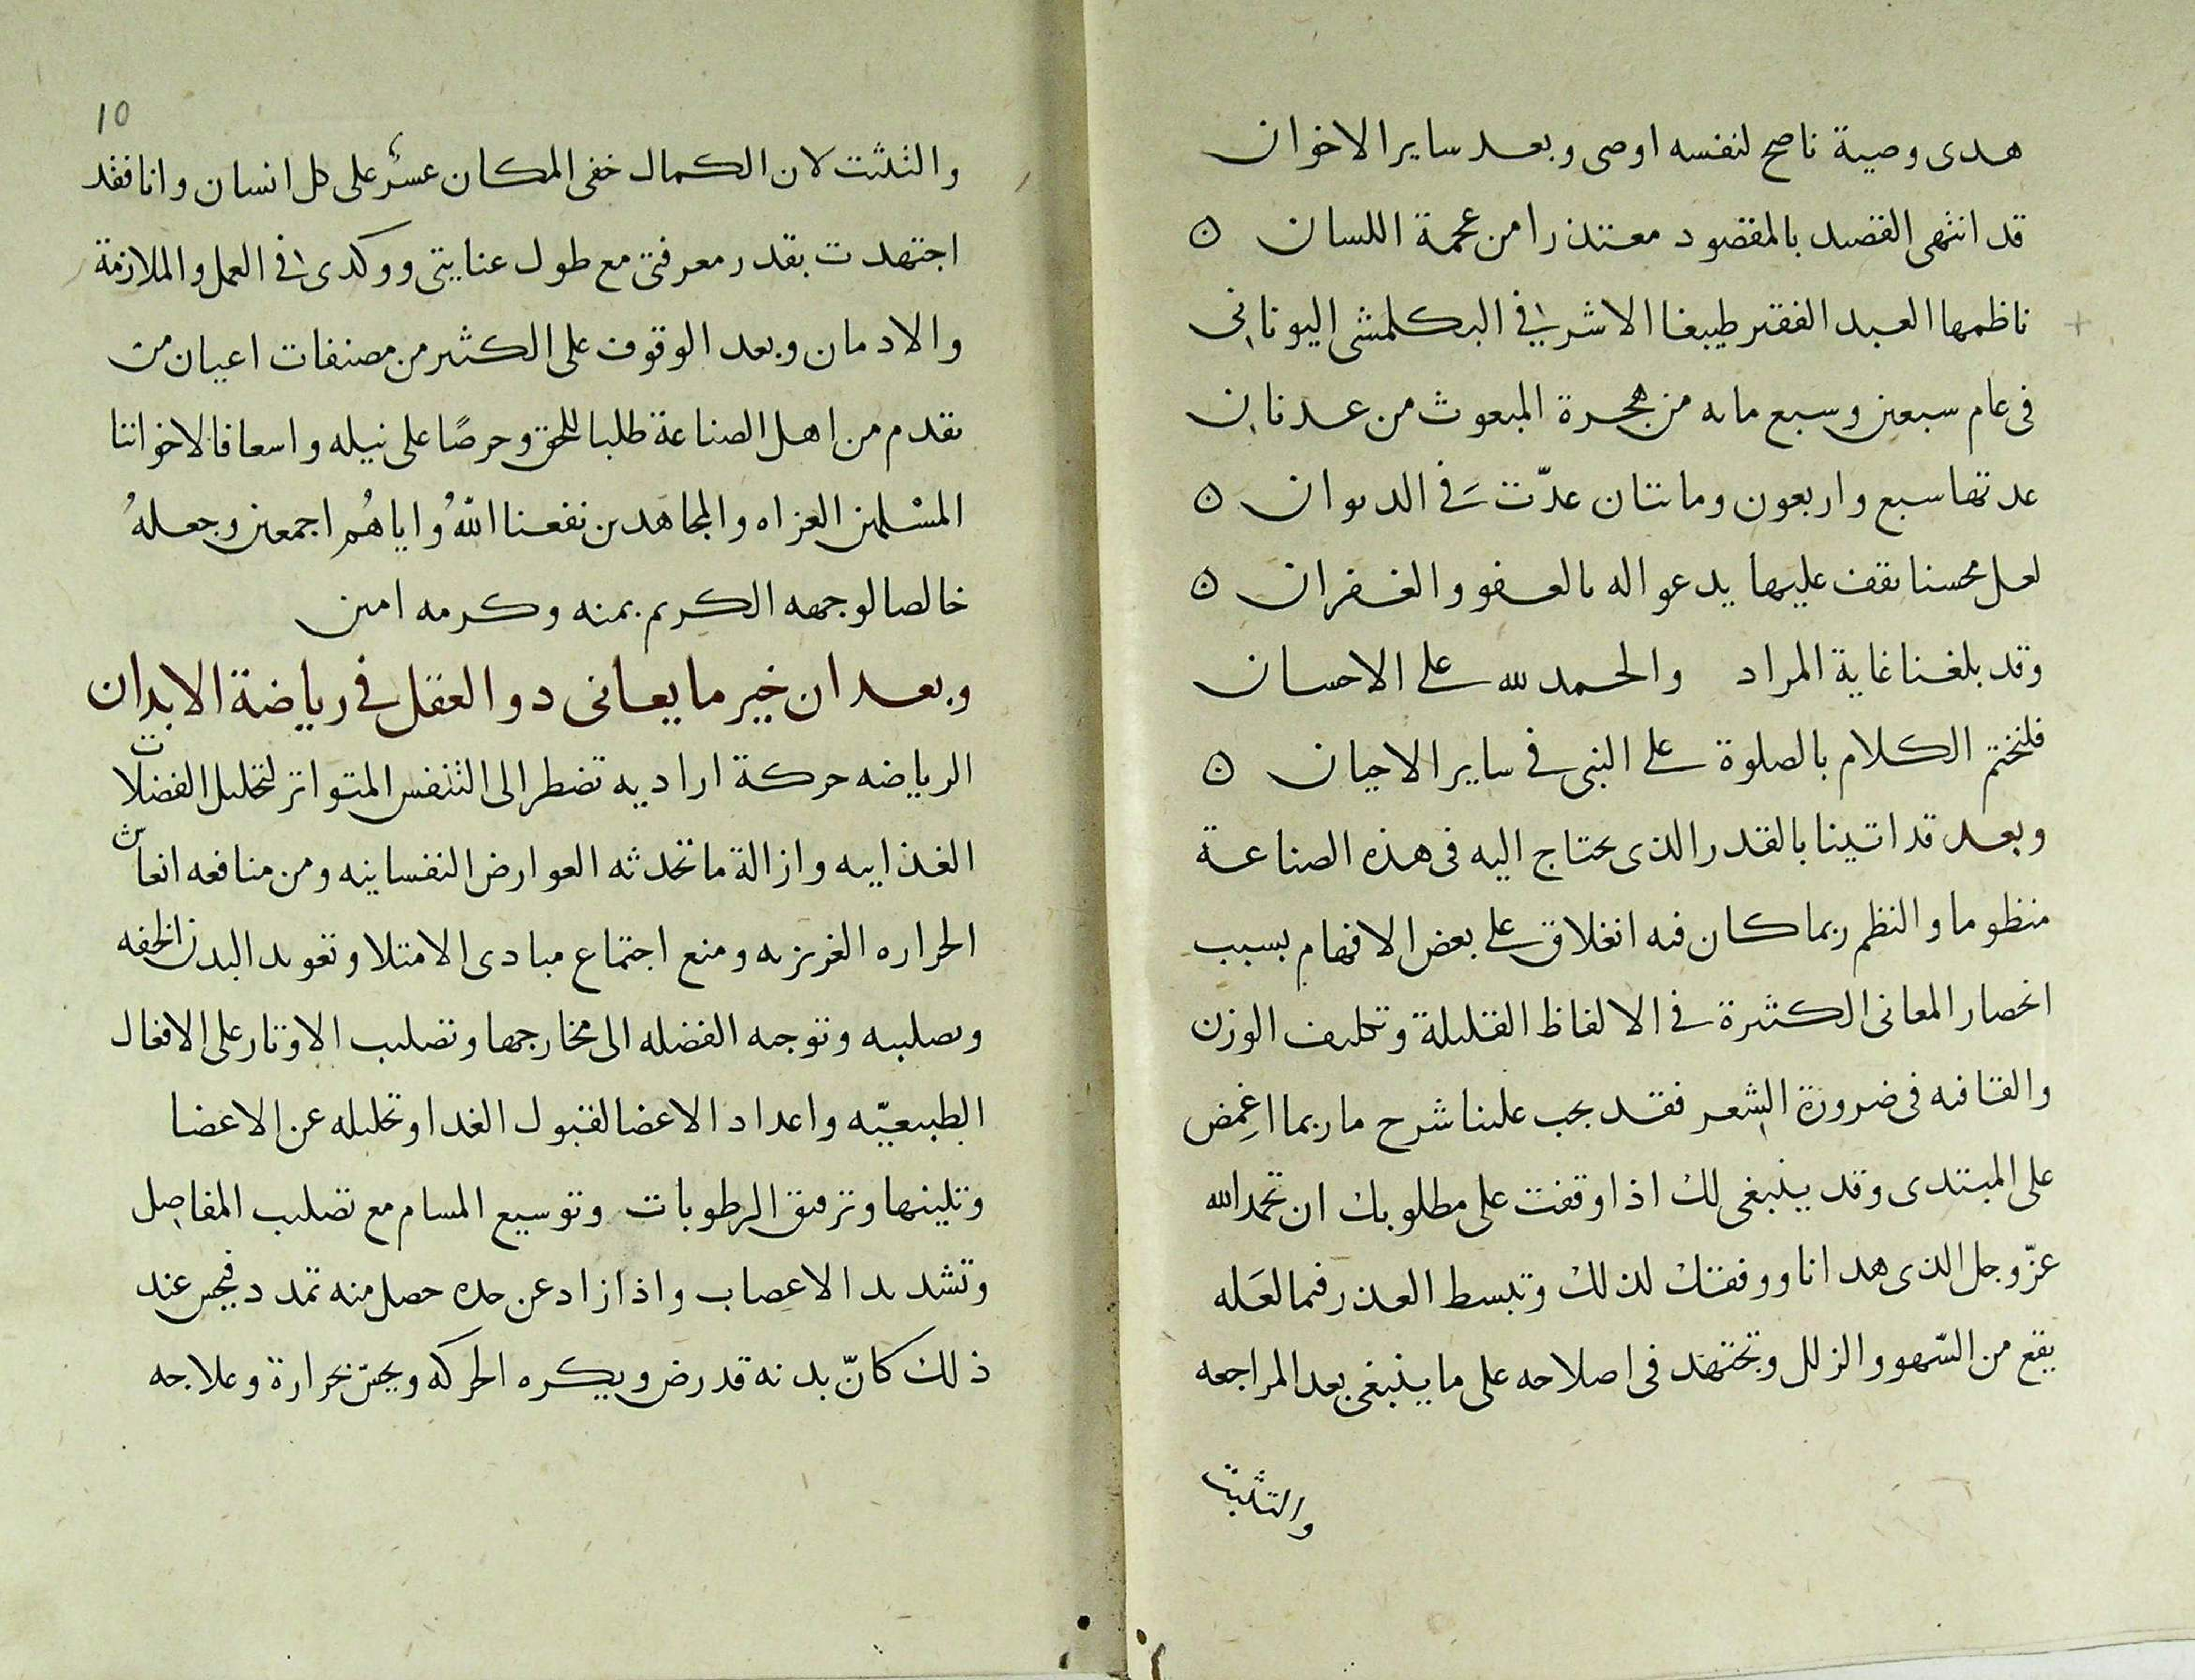 هدى وصية ناصح لنفسه اوصى وبعد ساير الاخوان
قد انتهى القصد بالمقصود معتذرا من عجمة اللسان ه
ناظمها العبد الفقير طيبغا الاشرفي البكلمشى اليوناني
فى عام سبعين وسبع مايه من هجرة المبعوث من عدنان
عدتها سبع واربعون ومائتان عدّت في الديوان ه
لعل محسنا يقف عليها يدعوا له بالعفو والغفران ه
وقد بلغنا غاية المراد والحمد لله على الاحسان
فلنختم الكلام بالصلوة على النبى فى ساير الاحيان ه
وبعد قد اتينا بالقدر الذى يحتاج اليه فى هذه الصناعة
منظوما والنظم ربما كان فيه انغلاق على بعض الافهام بسبب
انحصار المعانى الكثيرة في الالفاظ القليلة وتكليف الوزن
والقافيه فى ضرورة الشعر فقد يجب علينا شرح ما ربما اغمض
على المبتدى وقد ينبغى لك اذا وقفت على مطلوبك ان تحمد الله
عزّ وجل الذى هدانا ووفقك لذلك وتبسط العذر فيما لعَله
يقع من السّهو والزلل وتجتهد فى اصلاحه على ما ينبغى بعد المراجعه
والتثبت
10
والتثبت لان الكمال خفى المكان عسرٌ على كل انسان وانا فقد
اجتهدت بقدر معرفتى مع طول عنايتى ووكدى فى العمل والملازمة
والادمان وبعد الوقوف على الكثير من مصنفات اعيان من
تقدم من اهل الصناعة طلبا للحق وحرصًا على نيله واسعافا لاخواننا
المسْلمين الغزاه والمجاهدين نفعنا اللّهُ واياهُم اجمعين وجعلهُ
خالصا لوجهه الكريم بمنه وكرمه امين
وبعد ان خير ما يعانى دو العقل في رياضة الابدان
الرياضه حركة اراديه تضطر الى التنفس المتواتر لتحليل الفضلات
الغذاييه وازالة ما تحدثه العوارض النفسانيه ومن منافعه انعاش
الحراره الغريزيه ومنع اجتماع مبادى الامتلا وتعويد البدن الخفه
وتصليبه وتوجيه الفضله الى مخارجها وتصليب الاوتار على الافعال
الطبيعيّه واعداد الاعضا لقبول الغدا وتحليله عن الاعضا
وتليينها وترقيق الرطوبات وتوسيع المسام مع تصليب المفاصل
وتشديد الاعصاب واذا زاد عن حده حصل منه تمدد فيحس عند
ذلك كانّ بدنه قد رض ويكره الحركه ويحسّ بحرارة وعلاجه